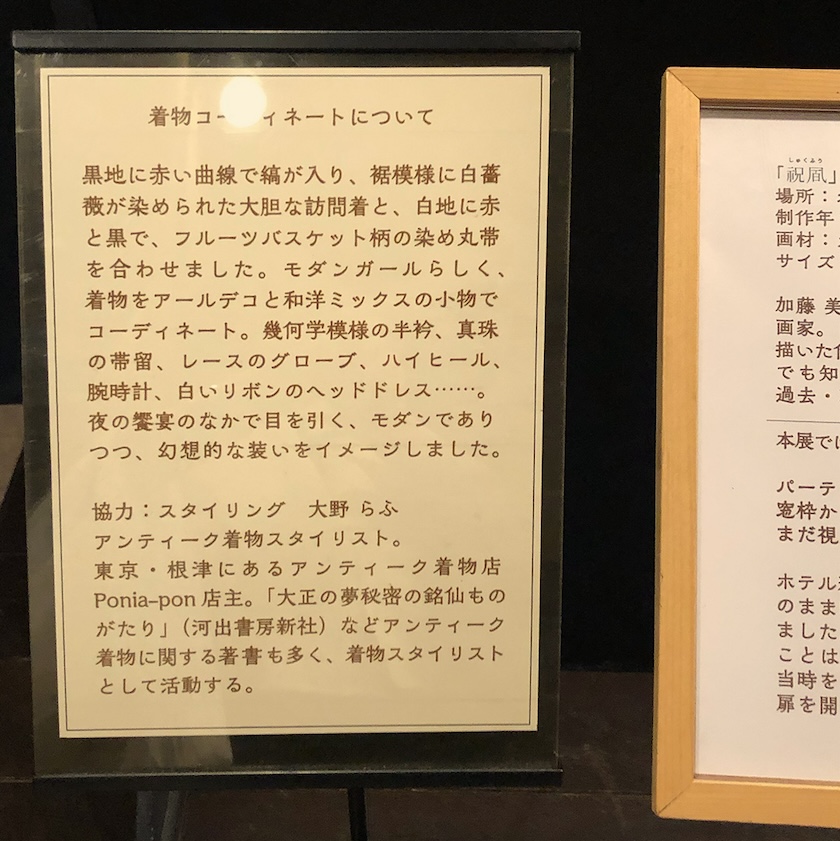 着物コーディネートについて
黒地に赤い曲線で縞が入り、裾模様に白薔
薇が染められた大胆な訪問着と、白地に赤
と黒で、フルーツバスケット柄の染め丸帯
を合わせました。モダンガールらしく、
着物をアールデコと和洋ミックスの小物で
コーディネート。幾何学模様の半衿、真珠
の帯留、レースのグローブ、ハイヒール、
腕時計、白いリボンのヘッドドレス……。
夜の饗宴のなかで目を引く、モダンであり
つつ、幻想的な装いをイメージしました。
協力：スタイリング　大野 らふ
アンティーク着物スタイリスト。
東京・根津にあるアンティーク着物店
Ponia-pon 店主。「大正の夢秘密の銘仙もの
がたり」（河出書房新社）などアンティーク
着物に関する著書も多く、着物スタイリスト
として活動する。
しゅくふう
「祝凬」
場所：
制作年
画材：
サイズ
加藤 美
画家。
描いた
でも知
過去・
本展では
パーテ
窓枠か
まだ視
ホテル
のまま
ました
ことは
当時を
扉を開